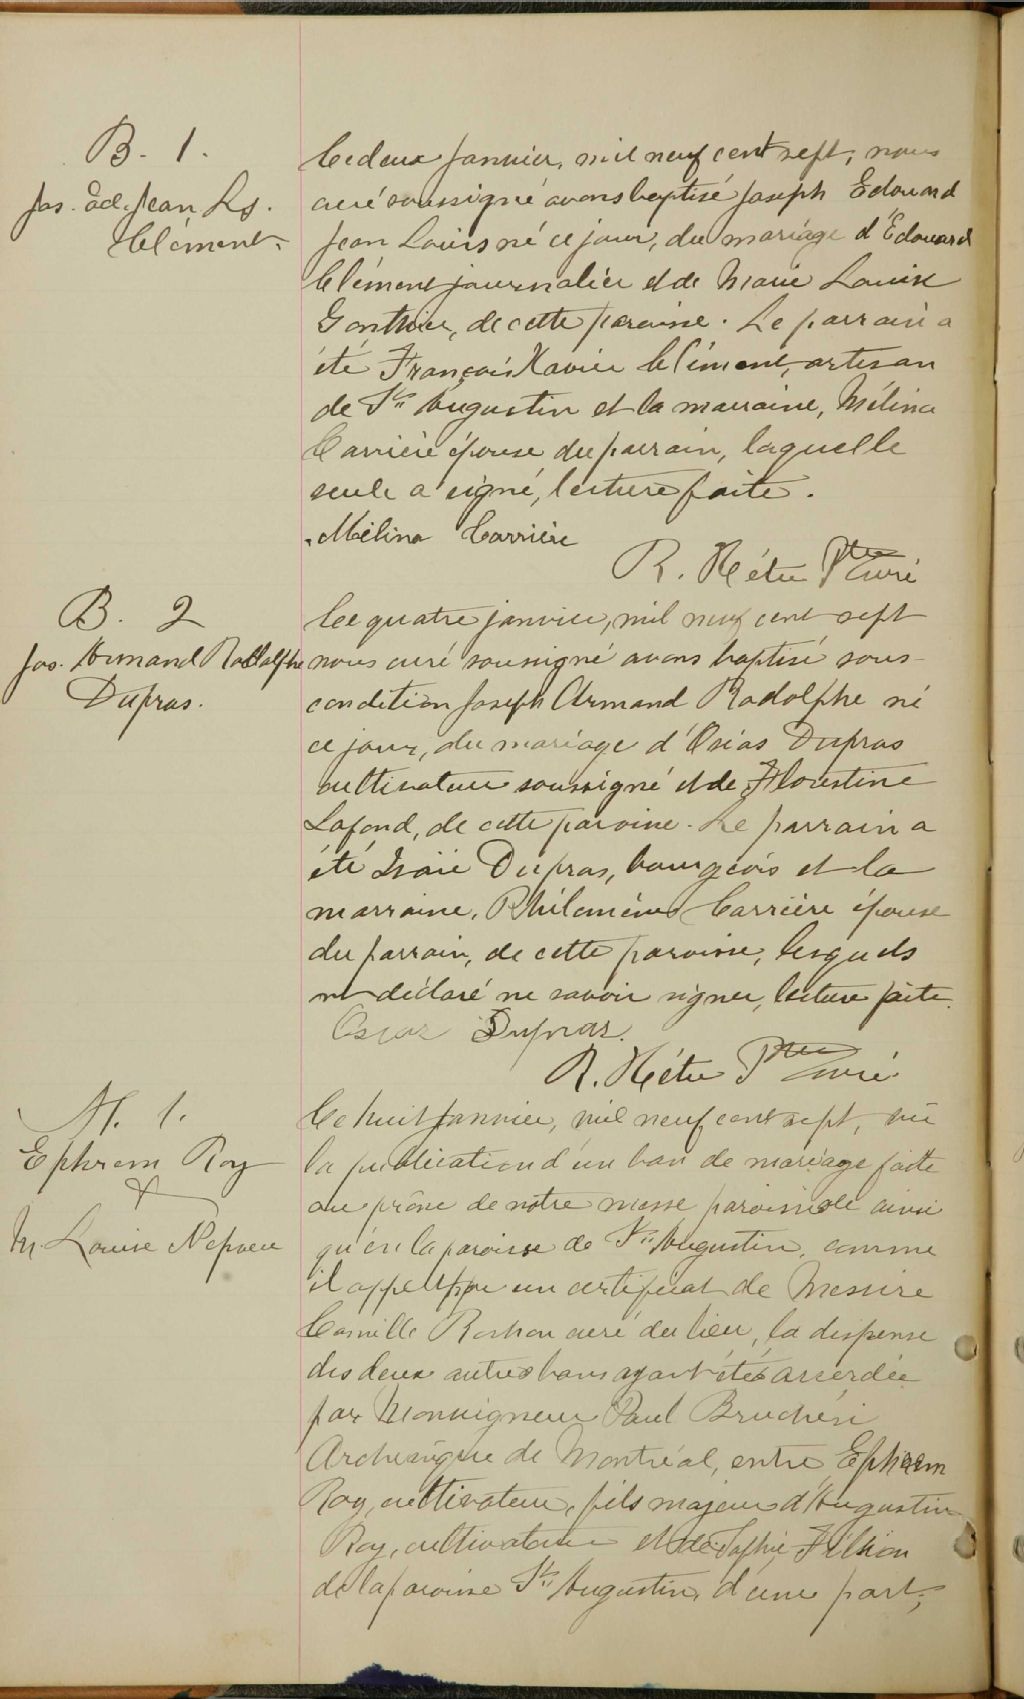 B. 1.
Jos. Ed. Jean Ls.
Clément.
Le deux janvier, mil neuf cent sept, nous
curé soussigné avons baptisé Joseph Edouard
Jean Louis né ce jour, du mariage d'Edouard
Clément journalier et de Marie Louise
Gonthier, de cette paroisse. Le parrain a
été François Xavier Clément, artisan
de St Augustin et la marraine, Mélina
Carrière épouse du parrain, laquelle
seule a signé, lecture faite.
Mélina Carrière
R. Hétu Ptre Curé
B. 2
Jos. Armand Rodolphe
Dupras.
Le quatre janvier, mil neuf cent sept
nous curé soussigné avons baptisé sous
condition Joseph Armand Rodolphe né
ce jour, du mariage d'Osias Dupras
cultivateur soussigné et de Florestine
Lafond, de cette paroisse. Le parrain a
été Isaïe Dupras, bourgeois et la
marraine, Philomène Carrière épouse
du parrain, de cette paroisse, lesquels
ont déclaré ne savoir signer, lecture faite.
Dupras.
R. Hétu Ptre Curé.
M. 1.
Ephrem Roy
&
M Louise Nepveu
Le huit janvier, mil neuf cent sept, vu
la publication d'un ban de mariage faite
au prône de notre messe paroissiale ainsi
qu'en la paroisse de St Augustin, comme
il appert par un certificat de Messire
Camille Rochon curé du lieu, la dispense
des deux autres bans ayant été accordée
par Monseigneur Paul Bruchési
Archevêque de Montréal, entre Ephrem
Roy, cultivateur, fils majeur d'Augustin
Roy, cultivateur et de Sophie Filion
de la paroisse St Augustin, d'une part,